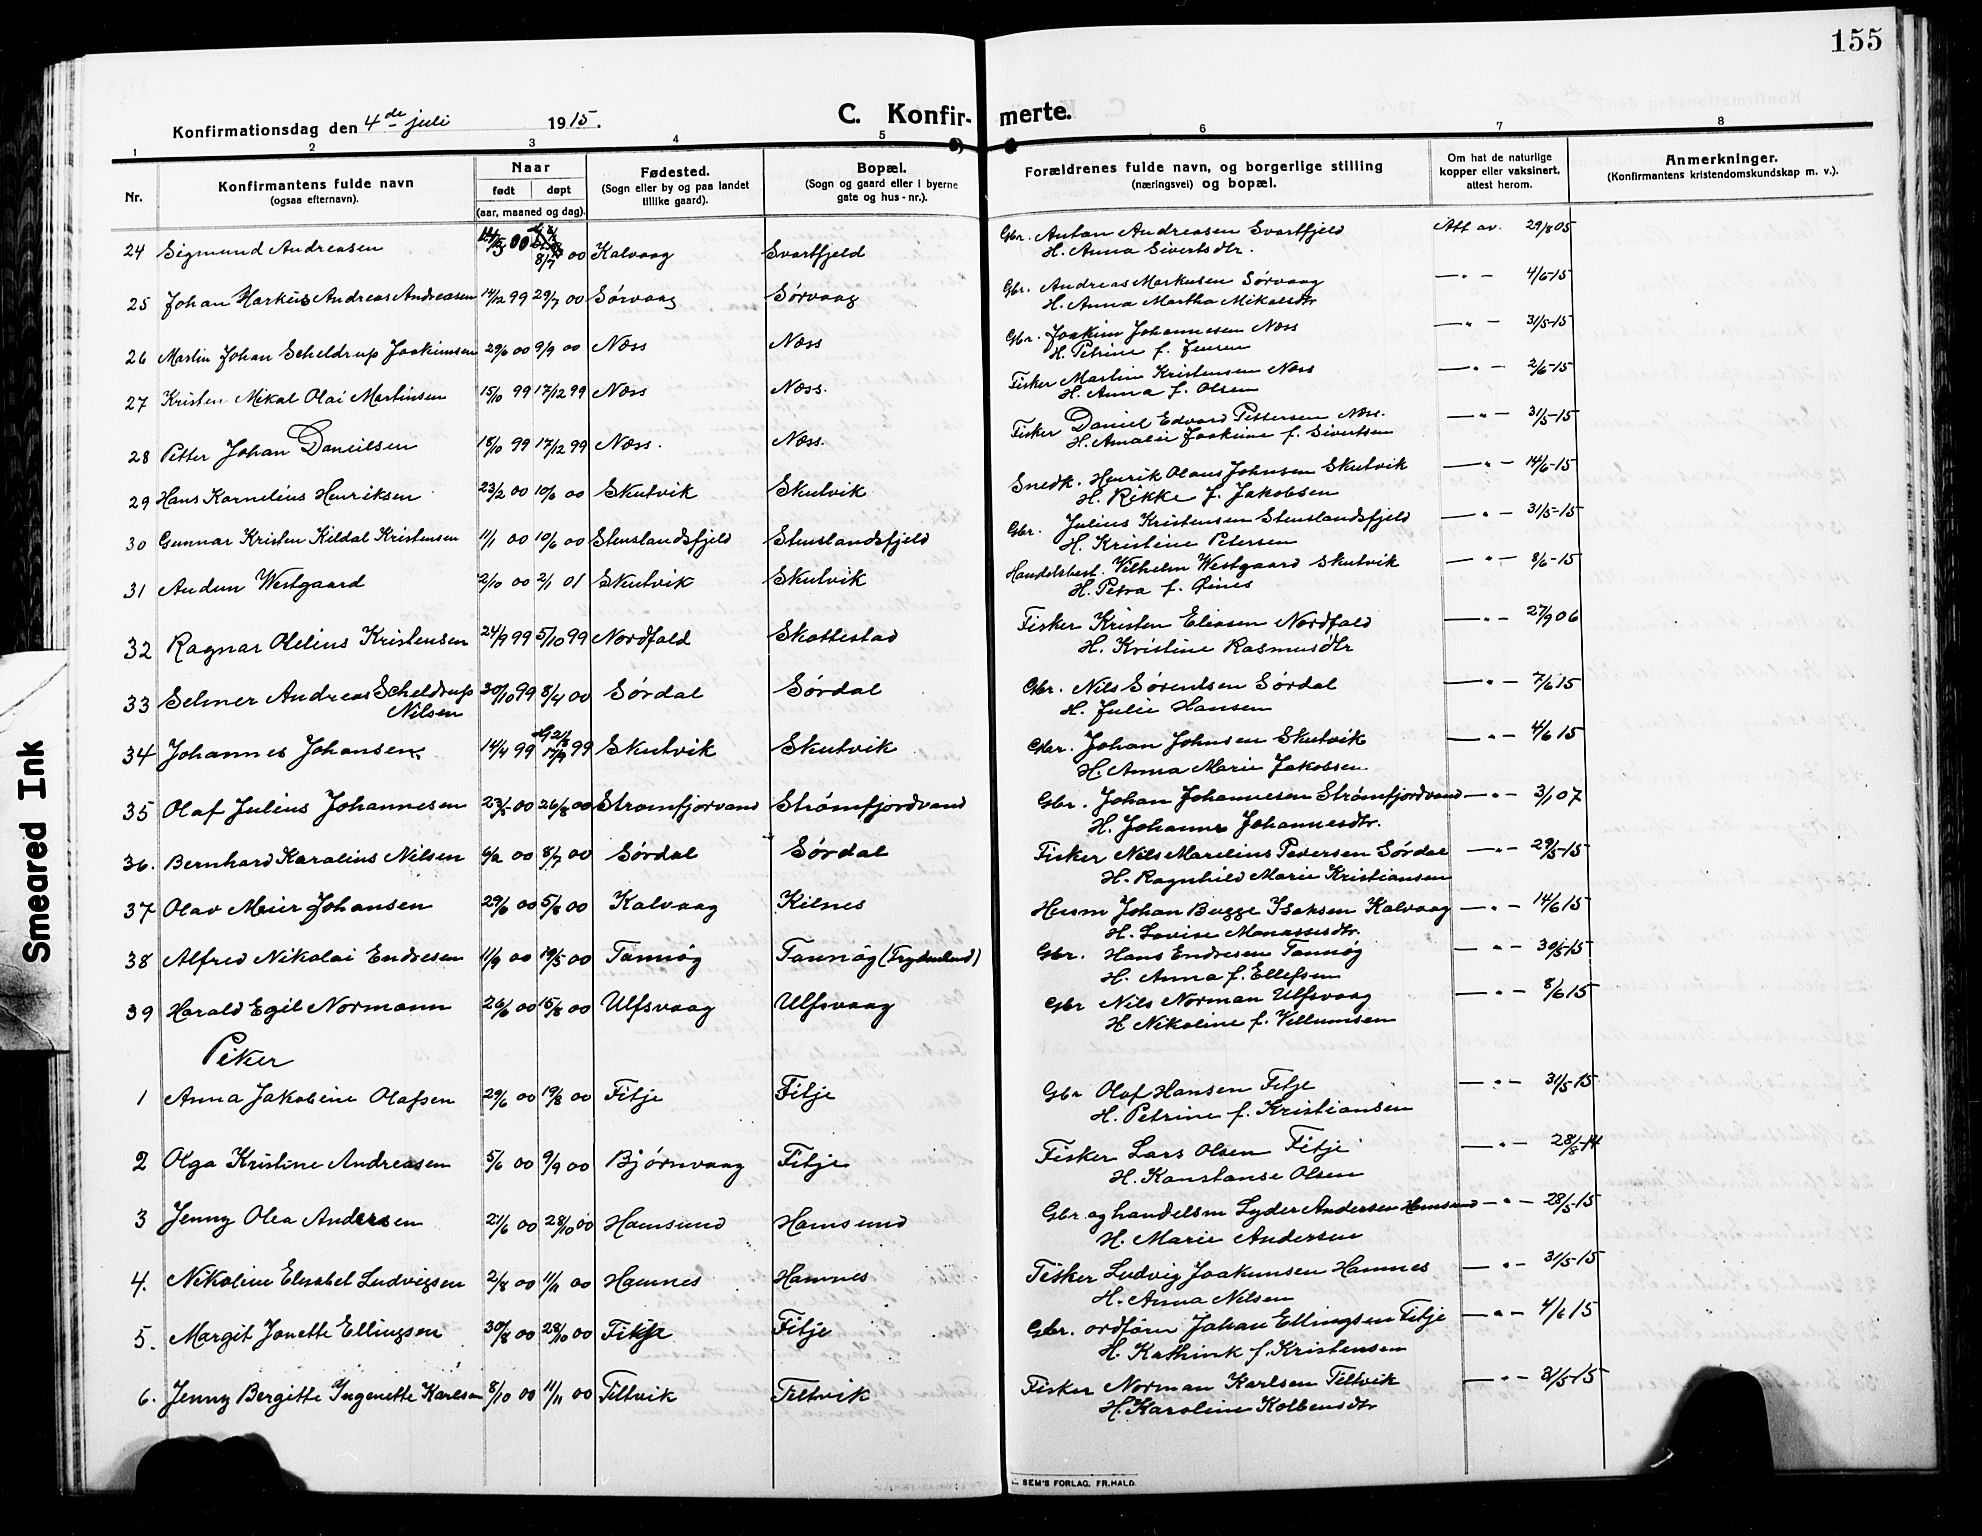 155
Konfirmationsdag den 4de juli 1915.
C. Konfirmerte.
1 2 3 4 5 6 7 8
Nr.
Konfirmantens fulde navn
(ogsaa efternavn).
Naar
født døpt
(aar, maaned og dag).
Fødested.
(Sogn eller by og paa landet
tillike gaard).
Bopæl.
(Sogn og gaard eller i byerne
gate og hus-nr.).
Forældrenes fulde navn, og borgerlige stilling
(næringsvei) og bopæl.
Om hat de naturlige
kopper eller vaksinert,
attest herom.
Anmerkninger.
(Konfirmantens kristendomskundskap m. v.).
24 Sigmund Andreasen 00 8/7 00 Kalvaag Svartfjeld Gbr. Anton Andreasen Svartfjeld Att av. 29/8 05
H. Anna Sivertsdtr.
25 Johan Markus Andreas Andreasen 14/12 99 29/7 00 Sørvaag Sørvaag Gbr. Andreas Markusen Sørvaag —"— 4/6-15
H. Anna Martha Mikalsdtr
26 Martin Johan Scheldrup Joakimsen 29/6 00 9/9 00 Næss Næss Gbr. Joakim Johannesen Næss —"— 31/5-15
H. Petrine f. Jensen
27 Kristen Mikal Olai Martinsen 15/10 99 17/12 99 Næss Næss. Fisker Martin Kristensen Næss —"— 2/6-15
H. Anna f. Olsen
28 Petter Johan Danielsen 18/10 99 17/12 99 Næss. Næss. Fisker Daniel Edvard Pettersen Næss. —"— 31/5-15
H. Amalie Joakime f. Sivertsen
29 Hans Kornelius Henriksen 23/2 00 10/6 00 Skutvik Skutvik Snedk. Henrik Olaus Johnsen Skutvik —"— 14/6-15
H. Rikke f. Jakobsen
30 Gunnar Kristen Kildal Kristensen 11/1 00 10/6 00 Stenslandsfjeld Stenslandsfjeld Gbr. Julius Kristensen Stenslandsfjeld —"— 31/5-15
H. Kristine Petersen
31 Audun Westgaard 2/10 00 2/1 01 Skutvik Skutvik Handelsbest. Vilhelm Westgaard Skutvik —"— 8/6-15
H. Petra f.
32 Ragnar Olelius Kristensen 24/9 99 5/10 99 Nordfold Skottestad Fisker Kristen Eliasen Nordfold —"— 27/9 06
H. Kristine Rasmusdtr
33 Selmer Andreas Scheldrup 30/10 99 8/4 00 Sørdal Sørdal Gbr. Nils Sørendsen Sørdal —"— 7/6 15
Nilsen H. Julie Hansen
34 Johannes Johansen. 14/4 99 17/9 99 Skutvik Skutvik Gbr. Johan Johnsen Skutvik —"— 4/6 15
H. Anna Marie Jakobsen
35 Olaf Julius Johannesen 23/5 00 26/8 00 Strømfjorvand Strømfjordvand Gbr. Johan Johannesen Strømfjordvand —"— 3/1 07
H. Johanne Johannesdtr.
36. Bernhard Karolius Nilsen 6/2 00 8/7 00 Sørdal Sørdal Fisker Nils Marelius Pedersen Sørdal —"— 29/5-15
H. Ragnhild Marie Kristiansen
37 Olav Meier Johansen 29/6 00 5/8 00 Kalvaag Kilnes Husm Johan Bugge Isaksen Kalvaag —"— 14/6 15
H. Lovise Manassesdtr.
38 Alfred Nikolai Endresen 11/9 00 19/5 00 Tannøg Tannøg Gbr. Hans Endresen Tannøg —"— 30/5-15
H. Anna f. Ellefsen
39 Harald Egil Normann 26/6 00 15/8 00 Ulfsvaag Ulfsvaag Gbr Nils Norman Ulfsvaag —"— 8/6 15
H Nikoline f. Villumsen
Piker
1 Anna Jakobine Olafsen 29/6 00 19/8 00 Fitje Fitje Gbr Olaf Hansen Fitje —"— 31/5-15
H. Petrine f. Kristiansen
2 Olga Kristine Andreasen 5/6 00 9/9 00 Bjørnvaag Fitje Fisker Lars Olsen Fitje —"— 28/8-14
H. Konstanse Olsen
3 Jenny Olea Andersen 21/6 00 28/10 00 Hamsund Hamsund Gbr og handelsm Lyder Andersen Hamsund —"— 28/5-15
H. Marie Andersen
4. Nikoline Elisabet Ludvigsen 2/8 00 11/11 00 Hamnes Hamnes Fisker Ludvig Joakimsen Hamnes —"— 31/5-15
H. Anna Nilsen
5. Margit Janette Ellingsen 30/8 00 28/10 00 Fitje Fitje Gbr. ordfører Johan Ellingsen Fitje —"— 4/6 15
H. Kathink f. Kristensen
6. Jenny Bergitte Ingenette Karlsen 8/10 00 11/11 00 Tiltvik Tiltvik Fisker Norman Karlsen Tiltvik —"— 31/5-15
H. Karoline Kolbensdtr
SEM'S FORLAG, FR.HALD.
Smeared Ink